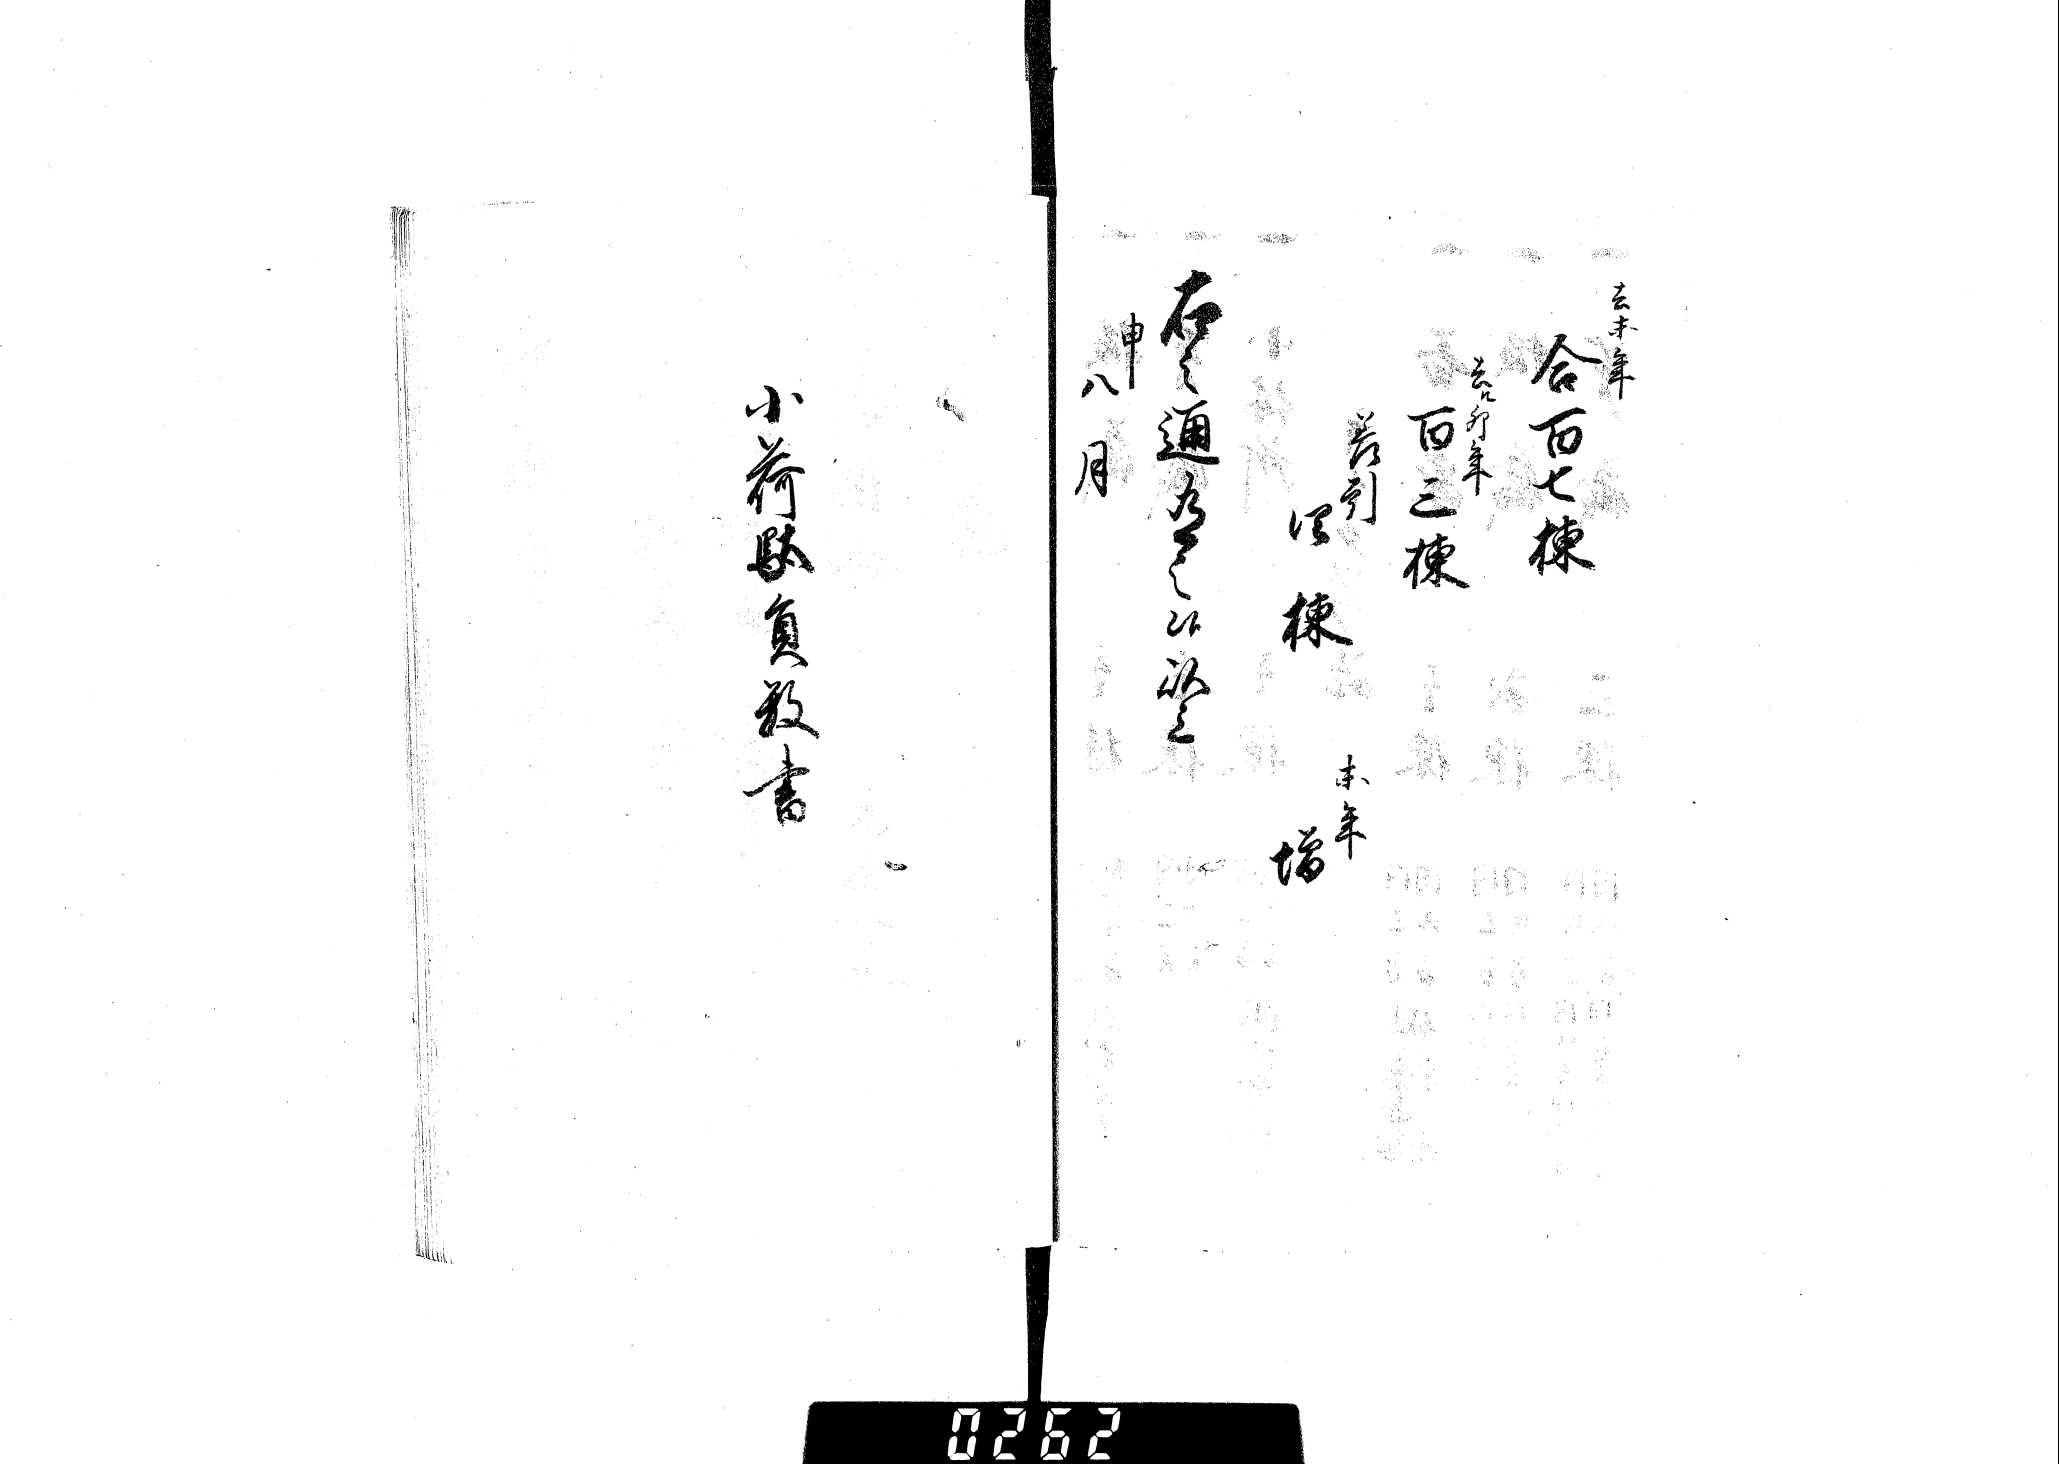 去未年
合百七棟
去ル卯年
百三棟
差引
四棟
未年
増
右之通有之候以上
申
八月
小荷駄員数書
0262